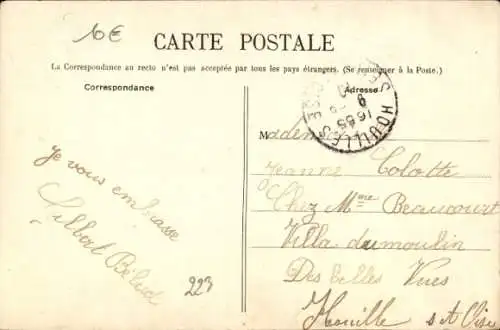 10€
CARTE POSTALE
La Correspondance au recto n'est pas acceptée par tous les pays étrangers. (Se renseigner à la Poste.)
Correspondance
Adresse
HOUILLES
16 55
Je vous embrasse
223
Mademoiselle
Jeanne Colotte
Chez Mme Beaucourt
Villa dumoulin
Des belles Vues
Houille s et Oise